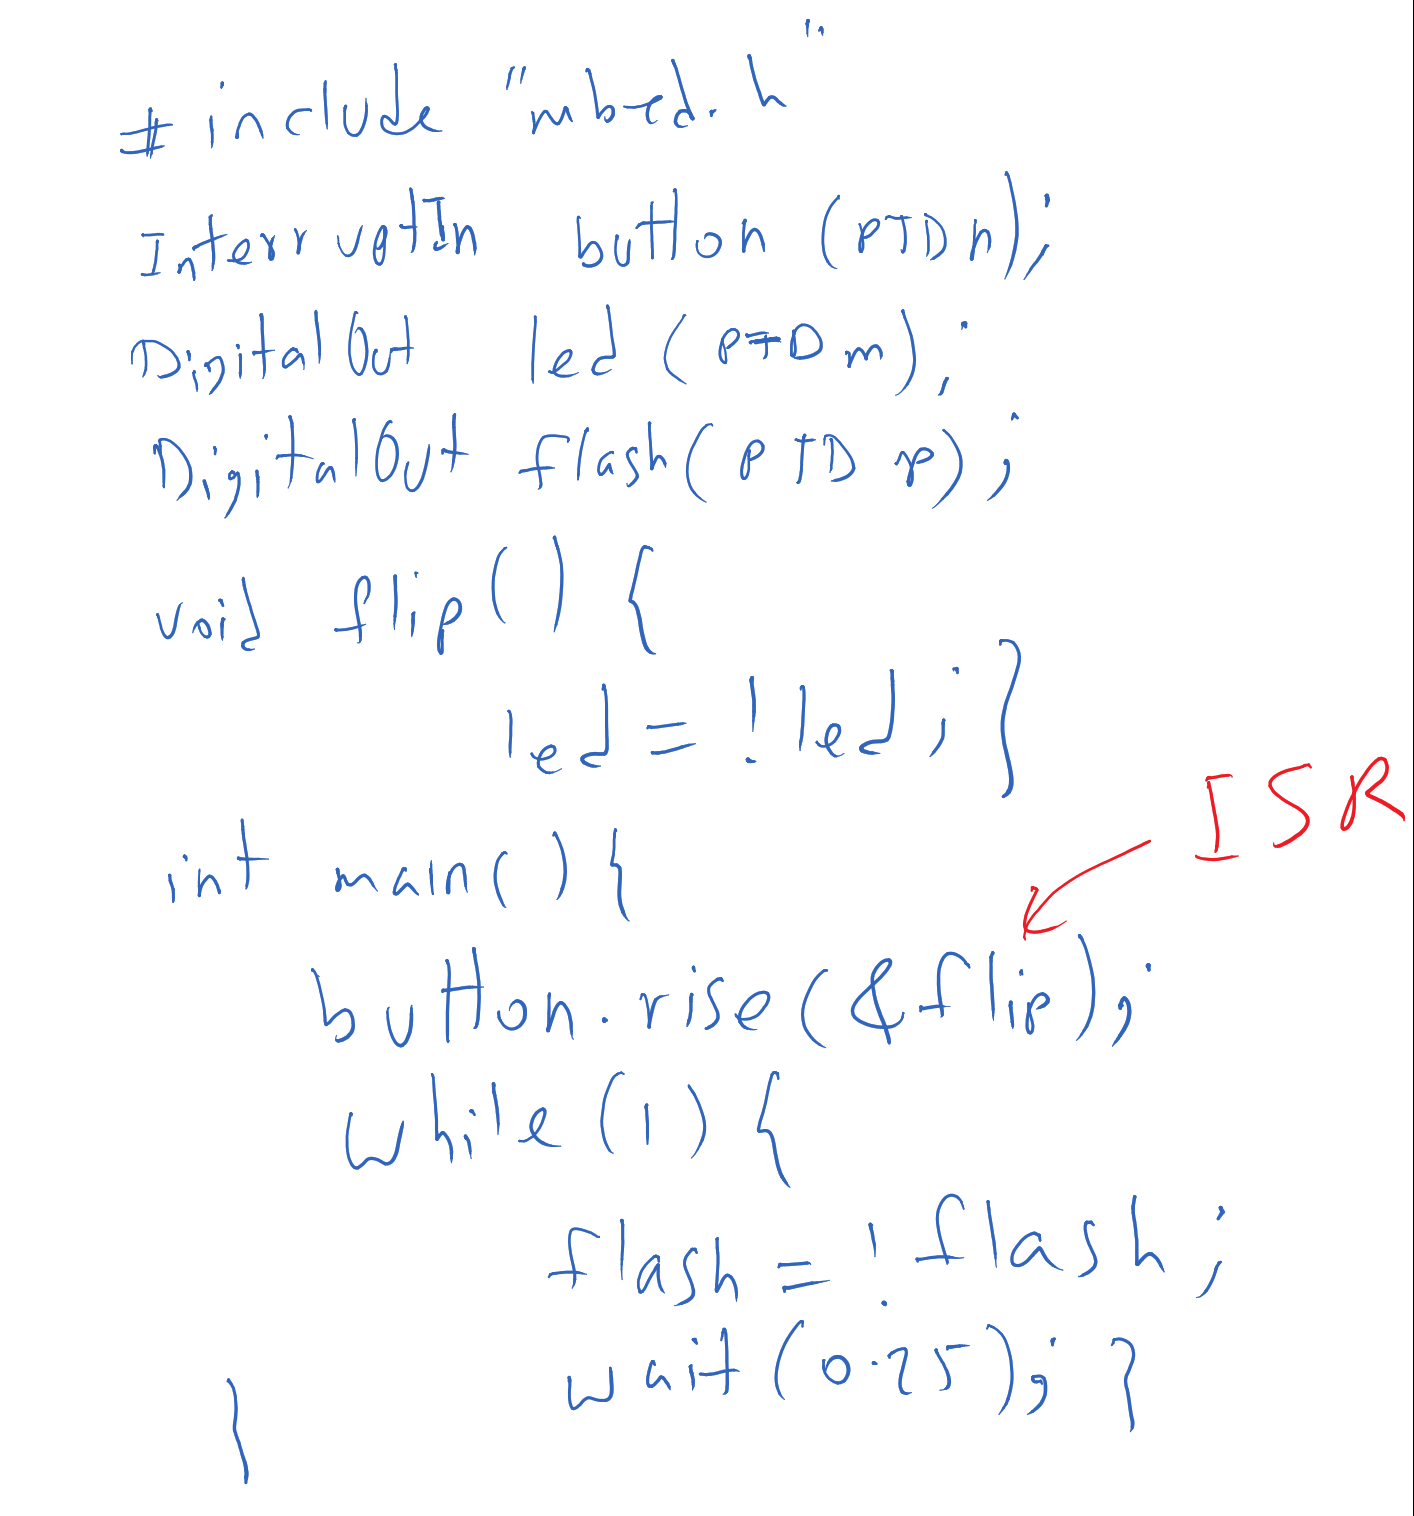 #include "mbed.h"
InterruptIn button (PTDn);
DigitalOut led (PTDm);
DigitalOut flash(PTDp);
void flip() {
led = !led;}
ISR
int main(){
button.rise(&flip);
while(1){
flash = !flash;
wait(0.25); }
}